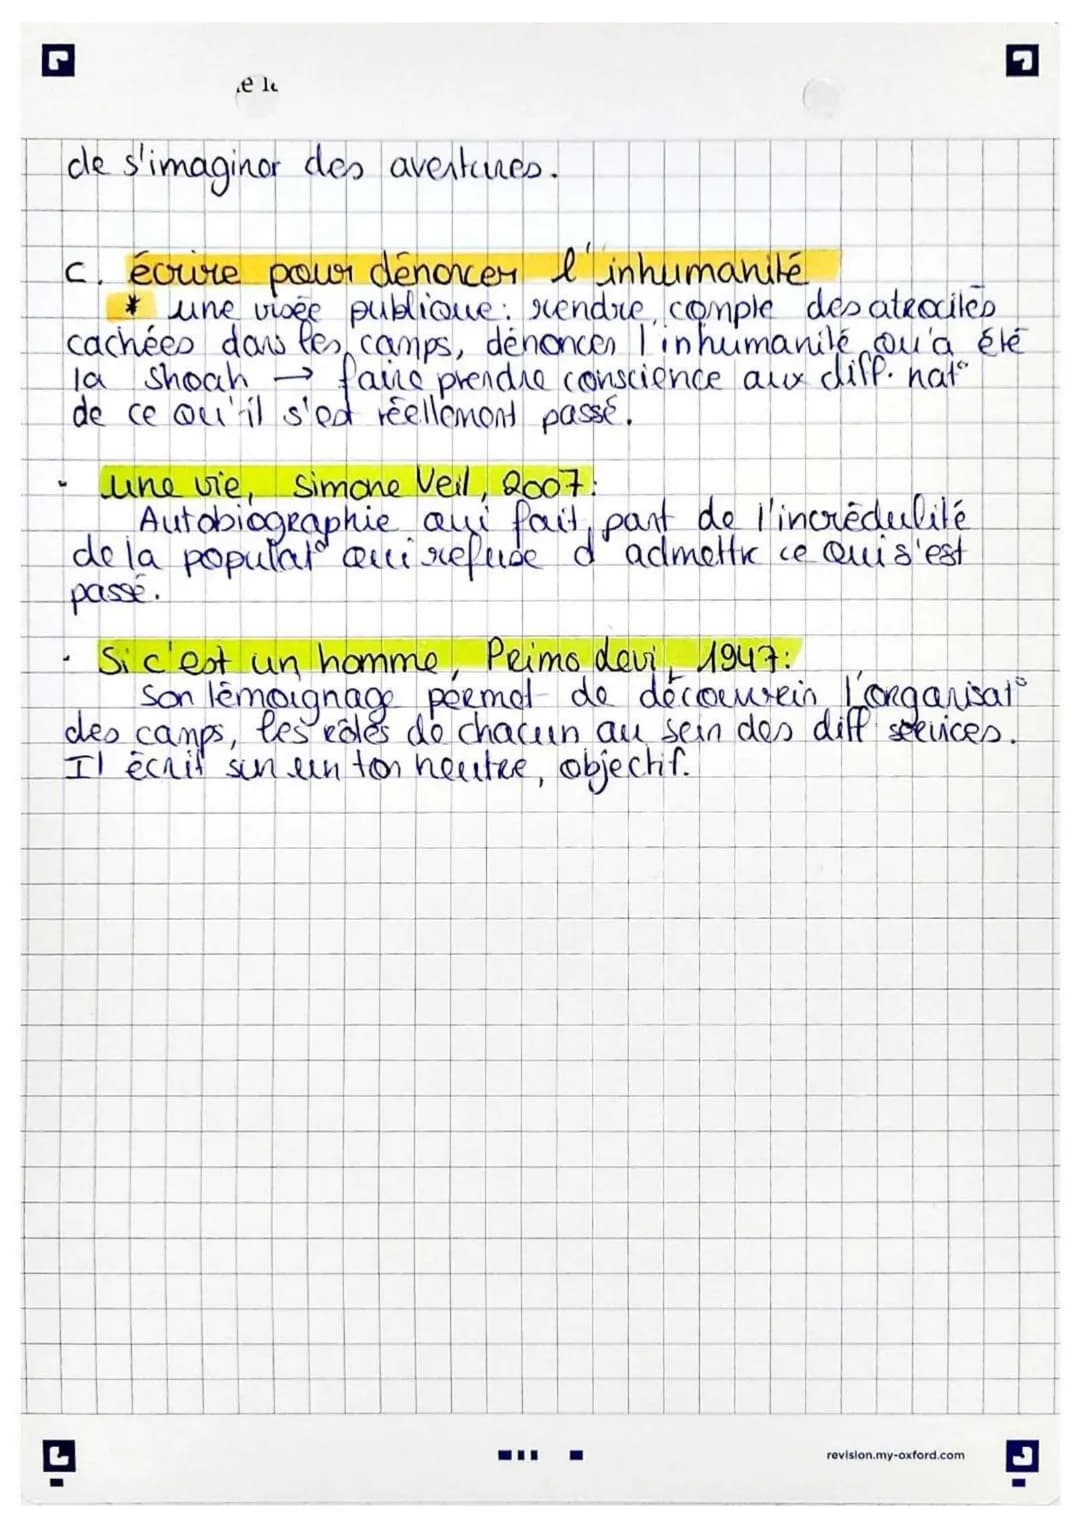 e le
de s'imaginer des aventures.
c. écrire pour dénoncer l'inhumanité
* une visée publique : rendre compte des atrocités
cachées dans les camps, dénoncer l'inhumanité qu'a été
la Shoah → faire prendre conscience aux diff. nat°
de ce qu'il s'est réellement passé.
· Une vie, Simone Veil, 2007 :
Autobiographie qui fait part de l'incrédulité
de la populat° qui refuse d'admettre ce qui s'est
passé.
· Si c'est un homme, Primo Levi, 1947 :
Son témoignage permet de découvrir l'organisat°
des camps, les rôles de chacun au sein des diff services.
Il écrit sur un ton neutre, objectif.
revision.my-oxford.com